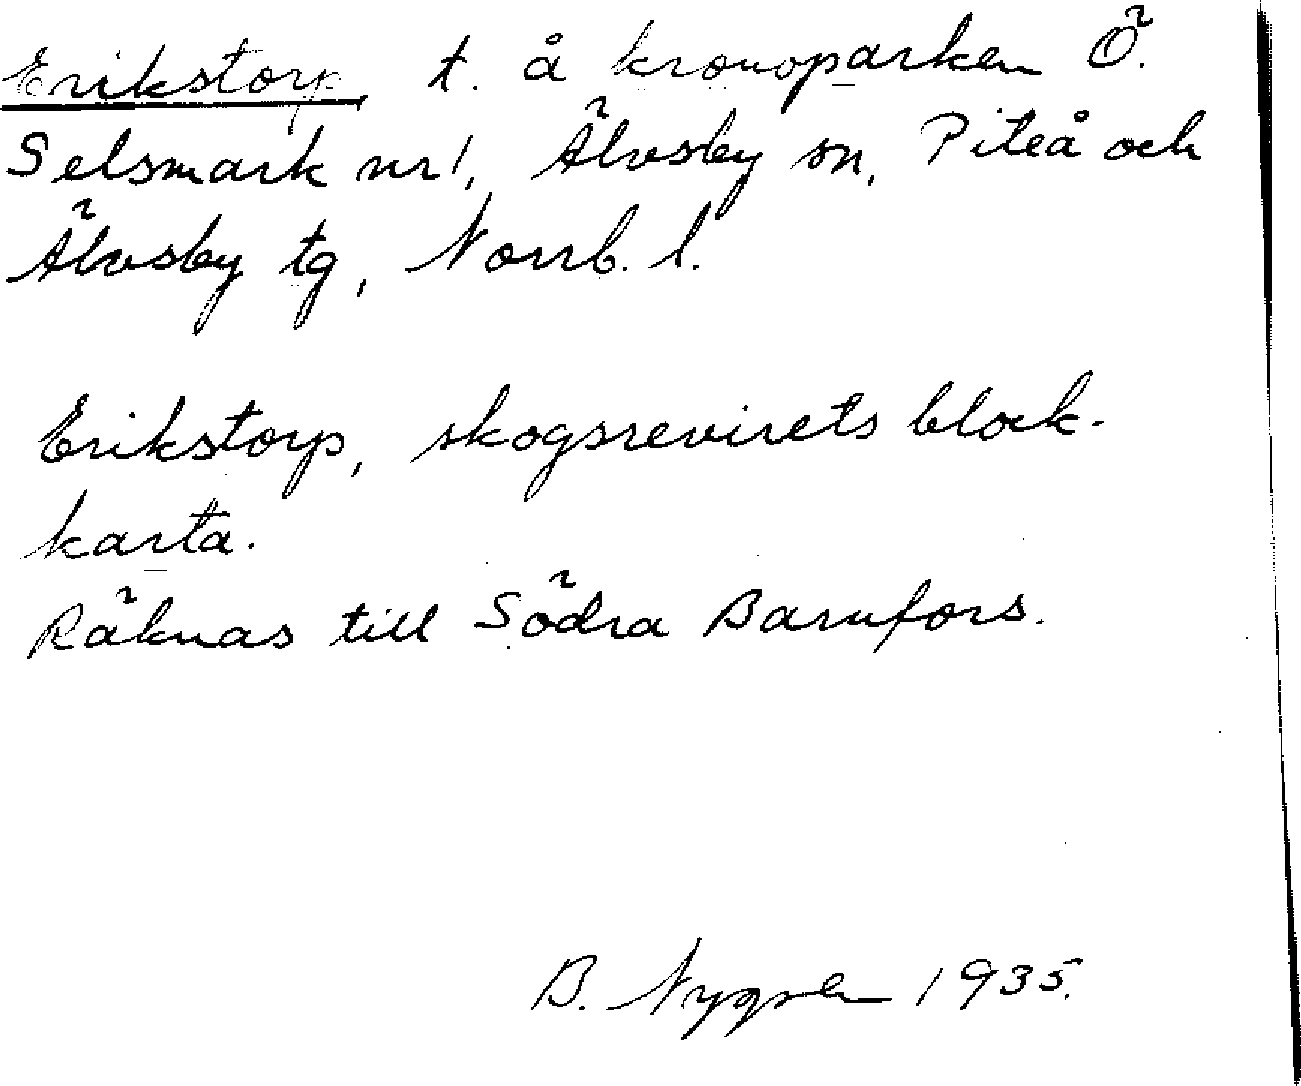 Erikstorp t. å kronoparken Ö.
Selsmark nr 1, Älvsby sn, Piteå och
Älvsby tg, Norrb. l.
Erikstorp, skogsrevirets block-
karta.
Räknas till Södra Barnfors.
B. Nygren 1935.